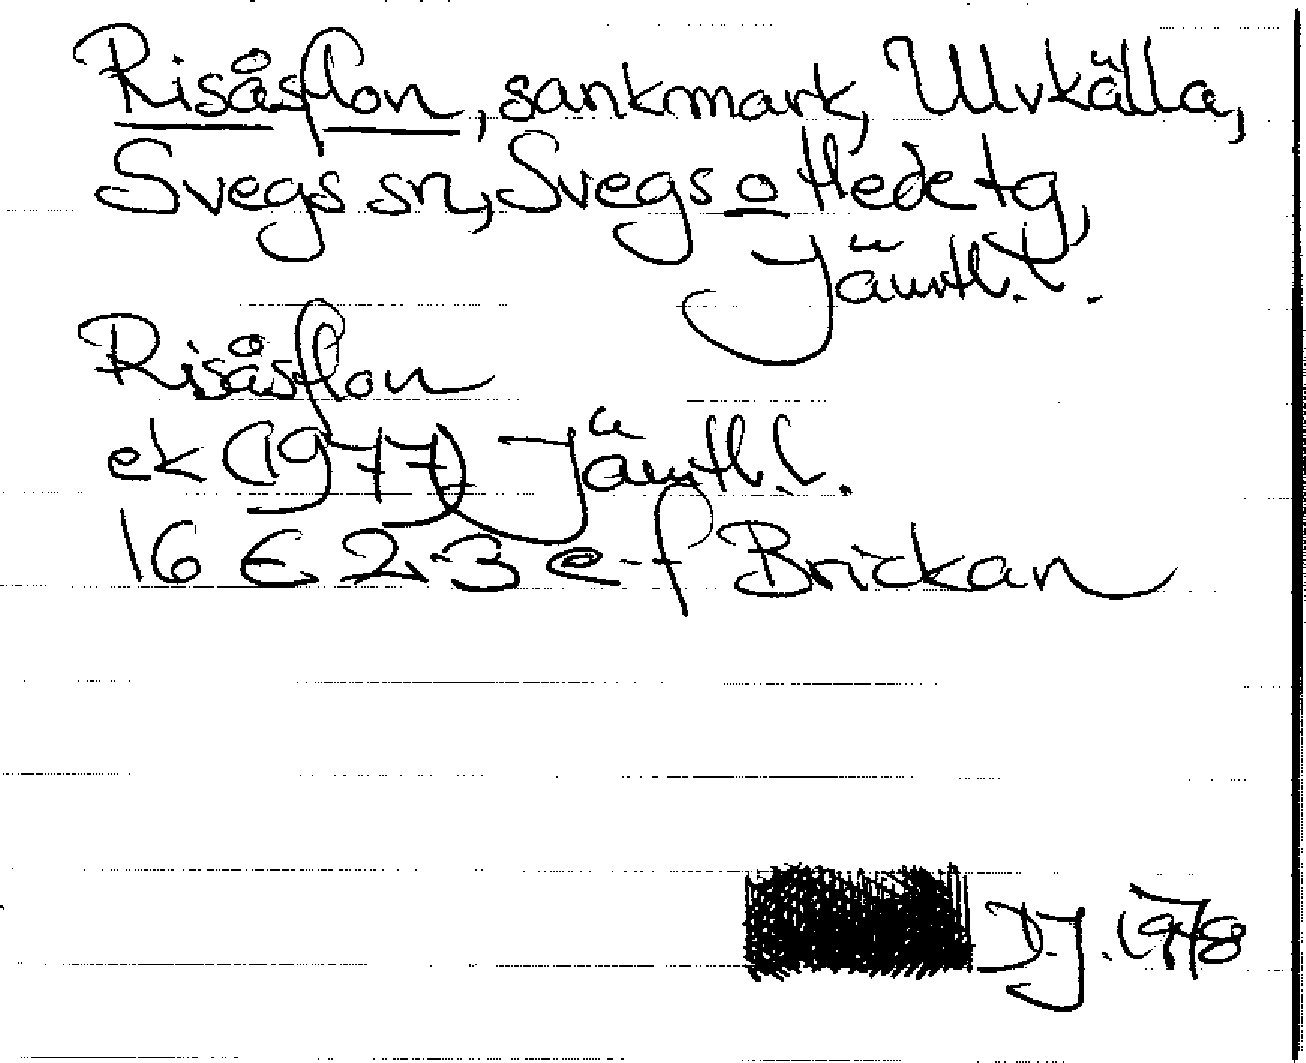 Risåsflon, sankmark, Ulvkälla,
Svegs sn, Svegs o Hede tg,
Jämtl. l.
Risåsflon
ek (1977) Jämtl. l.
16 E 2-3 e-f Brickan
D.J. 1978